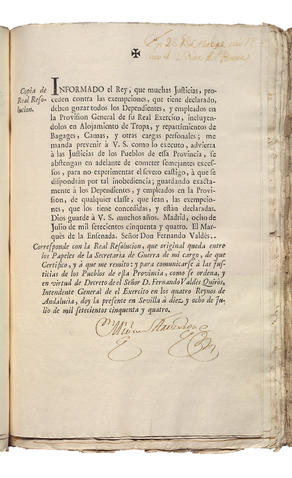 ✠
Copia de
Real Reso-
lucion.
INFORMADO el Rey, que muchas Justicias, pro-
ceden contra las exempciones, que tiene declarado,
deben gozar todos los Dependientes, y empleados en
la Provision General de su Real Exercito, incluyen-
dolos en Alojamiento de Tropa, y repartimientos de
Bagages, Camas, y otras cargas personales; me
manda prevenir à V. S. como lo executo, advierta
à las Justicias de los Pueblos de essa Provincia, se
abstengan en adelante de cometer semejantes exces-
sos, para no experimentar el severo castigo, à que se
dispondràn por tal inobediencia; guardando exacta-
mente à los Dependientes, y empleados en la Provi-
sion, de qualquier classe, que sean, las exempcio-
nes, que los tiene concedidas, y estàn declaradas.
Dios guarde à V. S. muchos años. Madrid, ocho de
Julio de mil setecientos cinquenta y quatro. El Mar-
quès de la Ensenada. Señor Don Fernando Valdès.
Corresponde con la Real Resolucion, que original queda entre
los Papeles de la Secretaria de Guerra de mi cargo, de que
Certifico, y à que me remito: y para comunicarse à las Jus-
ticias de los Pueblos de esta Provincia, como se ordena, y
en virtud de Decreto de el Señor D. Fernando Valdès Quiròs,
Intendente General de el Exercito en los quatro Reynos de
Andalucia, doy la presente en Sevilla à diez y ocho de Ju-
lio de mil setecientos cinquenta y quatro.